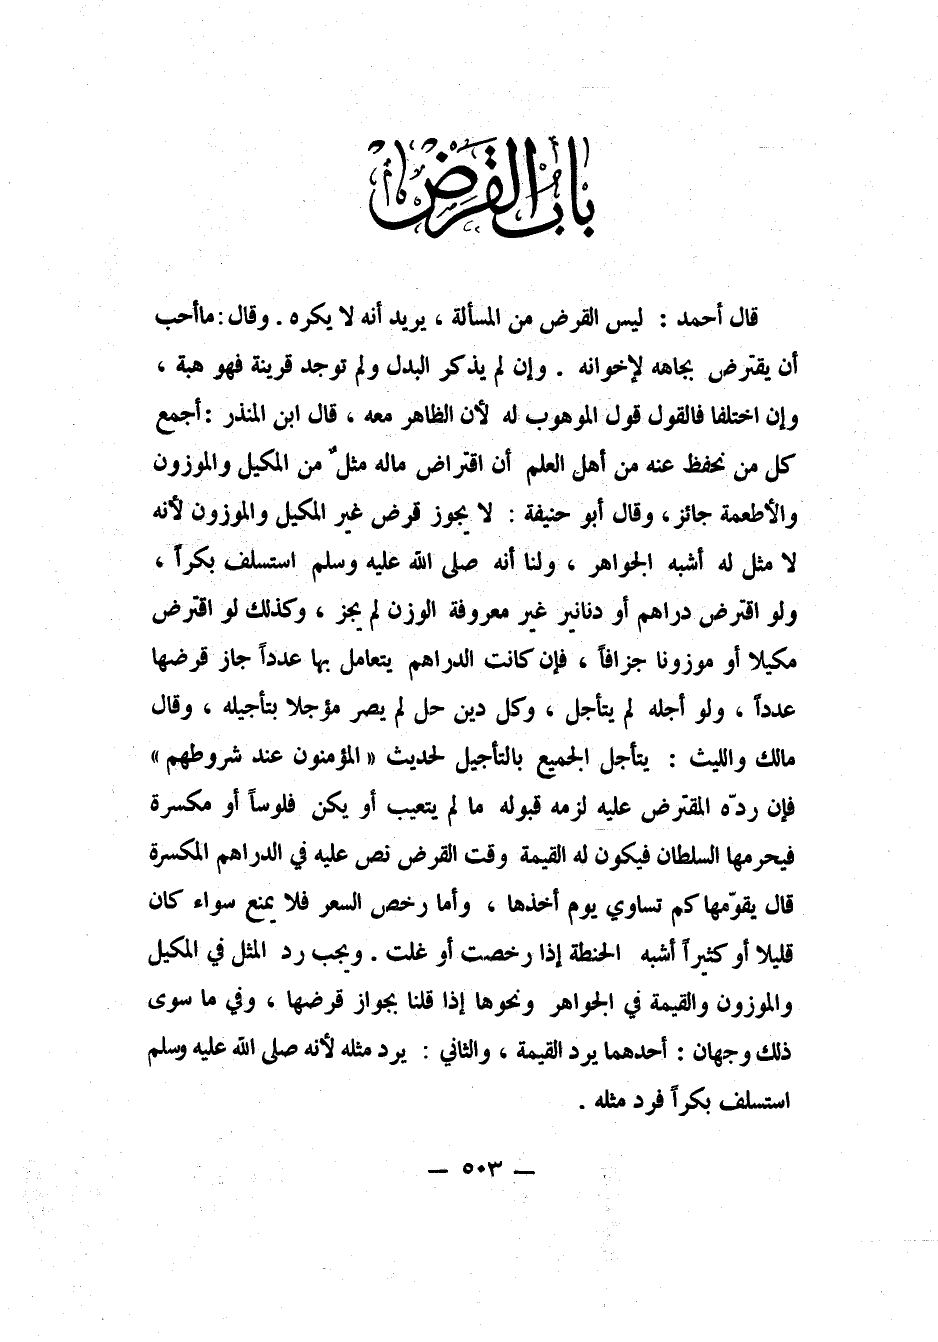 باب القرض
قال أحمد : ليس القرض من المسألة ، يريد أنه لا يكره . وقال : ماأحب
أن يقترض بجاهه لإخوانه . وإن لم يذكر البدل ولم توجد قرينة فهو هبة ،
وإن اختلفا فالقول قول الموهوب له لأن الظاهر معه ، قال ابن المنذر : أجمع
كل من نحفظ عنه من أهل العلم أن اقتراض ماله مثلٌ من المكيل والموزون
والأطعمة جائز ، وقال أبو حنيفة : لا يجوز قرض غير المكيل والموزون لأنه
لا مثل له أشبه الجواهر ، ولنا أنه صلى الله عليه وسلم استسلف بكراً ،
ولو اقترض دراهم أو دنانير غير معروفة الوزن لم يجز ، وكذلك لو اقترض
مكيلا أو موزونا جزافاً ، فإن كانت الدراهم يتعامل بها عدداً جاز قرضها
عدداً ، ولو أجله لم يتأجل ، وكل دين حل لم يصر مؤجلا بتأجيله ، وقال
مالك والليث : يتأجل الجميع بالتأجيل لحديث « المؤمنون عند شروطهم »
فإن ردّه المقترض عليه لزمه قبوله ما لم يتعيب أو يكن فلوساً أو مكسرة
فيحرمها السلطان فيكون له القيمة وقت القرض نص عليه في الدراهم المكسرة
قال يقوّمها كم تساوي يوم أخذها ، وأما رخص السعر فلا يمنع سواء كان
قليلا أو كثيراً أشبه الحنطة إذا رخصت أو غلت . ويجب رد المثل في المكيل
والموزون والقيمة في الجواهر ونحوها إذا قلنا بجواز قرضها ، وفي ما سوى
ذلك وجهان : أحدهما يرد القيمة ، والثاني : يرد مثله لأنه صلى الله عليه وسلم
استسلف بكراً فرد مثله .
— ٥٠٣ —